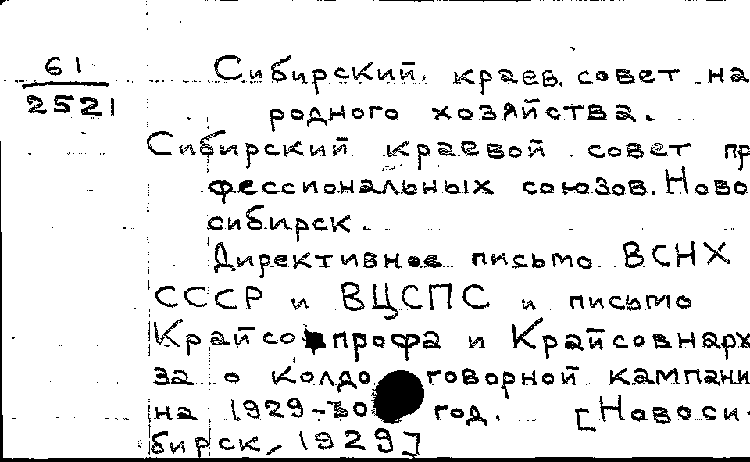 61
2521
Сибирский. краев. совет на
родного хозяйства.
Сибирский краевой совет пр
фессиональных союзов. Ново
сибирск.
Директивное письмо ВСНХ
СССР и ВЦСПС и письмо
Крайсовпрофа и Крайсовнарх
за о колдоговорной кампани
на 1929-30 год. [Новоси-
бирск, 1929]